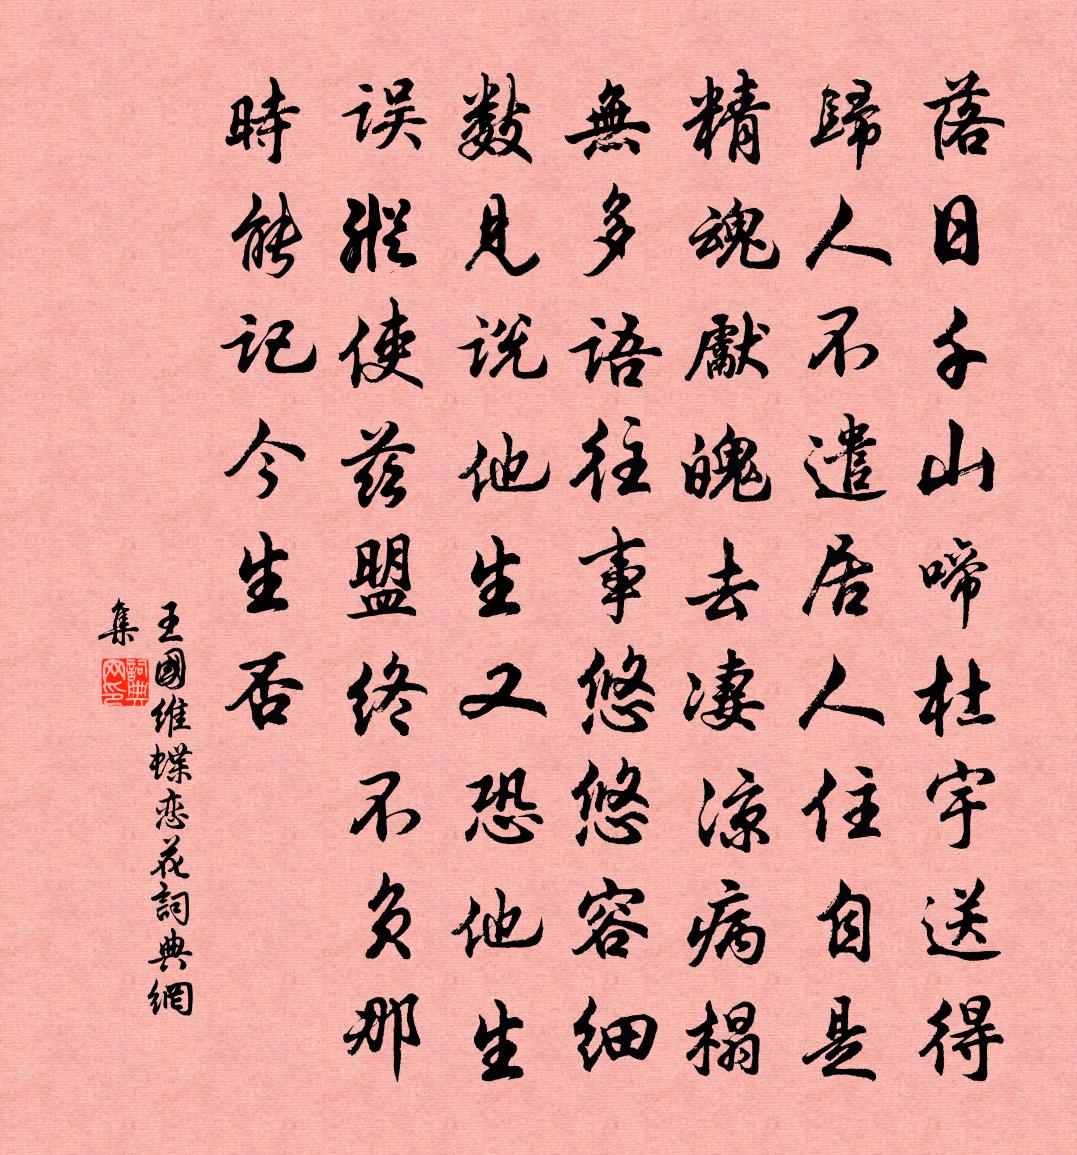 落日千山啼杜宇送得
歸人不遣居人住自是
精魂獻魄去凄涼病榻
無多語往事悠悠容細
數見說他生又恐他生
誤縱使茲盟終不負那
時能記今生否
王國維蝶恋花詞典網
集
詞典
网印